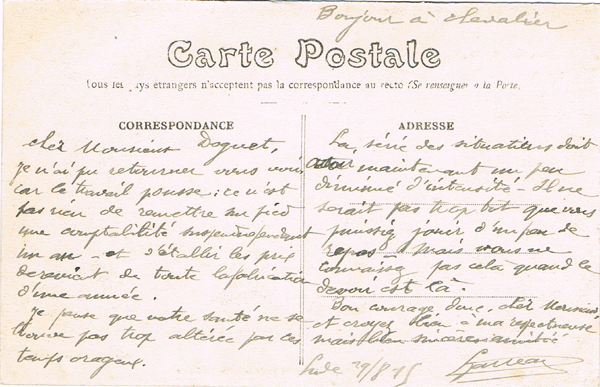 Bonjour à Chevalier
Carte Postale
Tous les pays étrangers n'acceptent pas la correspondance au recto (Se renseigner à la Poste.
CORRESPONDANCE
cher Monsieur Doguet,
je n'ai pu retourner vous voir
car le travail pousse : ce n'est
pas rien de remettre sur pied
une comptabilité suspendue pendant
un an - et d'établir les prix
de revient de toute la fabrication
d'une année.
Je pense que votre santé ne se
trouve pas trop altérée par ces
temps orageux.
ADRESSE
La série des doit
avoir maintenant un peu
diminué d'intensité - Il ne
serait pas trop tôt que vous
puissiez jouir d'un peu de
repos - mais vous ne
connaissez pas cela quand le
devoir est là.
Bon courage donc, cher Monsieur,
et croyez bien à ma respectueuse
mais bien sincère amitié
29/8 15